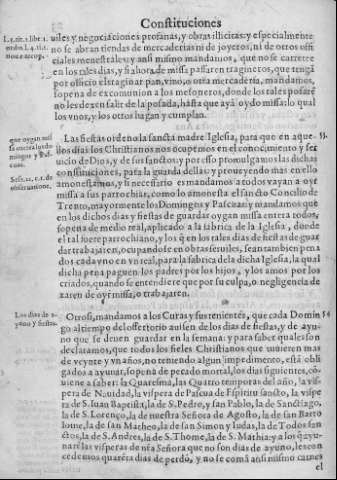 Constituciones
L. 5. tit. 1. libr. 1.
ordin. l. 4. tit.
uiles y negociaciones profanas, y obras illicitas: y especialmente
no se abran tiendas de mercaderias ni de joyeros, ni de otros offi
ciales menestrales: y ansi mismo mandamos, que no se carreteen
en los tales dias, y si a hora de missa passaren tragineros, que tengã
por officio el traginar pan, vino, o otra mercaderia, mandamos,
sopena de excomunion a los mesoneros, donde los tales posarẽ
no les dexen salir de la posada, hasta que aya oydo missa: lo qual
los vnos, y los otros hagan y cumplan.
que oygan mis
sa
los
do
mingos y Pas
cuas.
Sess. 22. c. 1. de
obseruatione.
Las fiestas ordeno la sancta madre Iglesia, para que en aque
llos dias los Christianos nos ocupemos en el conocimiento y ser
uicio de Dios, y de sus sanctos: y por esso promulgamos las dichas
constituciones, para la guarda dellas: y proueyendo mas en ello
amonestamos, y si necessario es mandamos a todos vayan a oyr
missa a sus parrochias, como lo amonesta el sancto Concilio de
Trento, mayormente los Domingos y Pascuas: y mandamos que
en los dichos dias y fiestas de guardar oygan missa entera todos,
sopena de medio real, aplicado a la fabrica de la Iglesia, donde
el tal fuere parrochiano, y los q̃ en los tales dias de fiestas de guar
dar trabajaren, ocupandose en obras seruiles, sean tambien pena
dos cada vno en vn real, para la fabrica de la dicha Iglesia, la qual
dicha pena paguen los padres por los hijos, y los amos por los
criados, quando se entendiere que por su culpa, o negligencia de
xaren de oyr missa, o trabajaren.
53.
Los dias de a-
yuno y fiestas.
Otrosi, mandamos a los Curas y sus tenientes, que cada Domin
go al tiempo del offertorio auisen de los dias de fiestas, y de ayu-
no que se deuen guardar en la semana: y para saber quales son
declaramos, que todos los fieles Christianos que vuieren mas
de veynte y vn años, no teniendo algun impedimento, està obli
gados a ayunar, sopena de pecado mortal, los dias siguientes, cõ-
uiene a saber: la Quaresma, las Quatro temporas del año, la vis-
pera de Nauidad, la vispera de Pascua de Espiritu sancto, la vispe
ra de S. Iuan Baptista, la de S. Pedro, y san Pablo, la de Sanctiago,
la de S. Lorenço, la de nuestra Señora de Agosto, la de san Barto
lome, la de san Matheo, la de san Simon y Iudas, la de Todos san
ctos, la de S. Andres, la de S. Thome, la de S. Mathia: y a los q̃ ayu-
nare las visperas de nr̃a Señora que no son dias de ayuno, les con
cedemos quarẽta dias de perdõ, y no se comã ansi mismo carnes
54
el